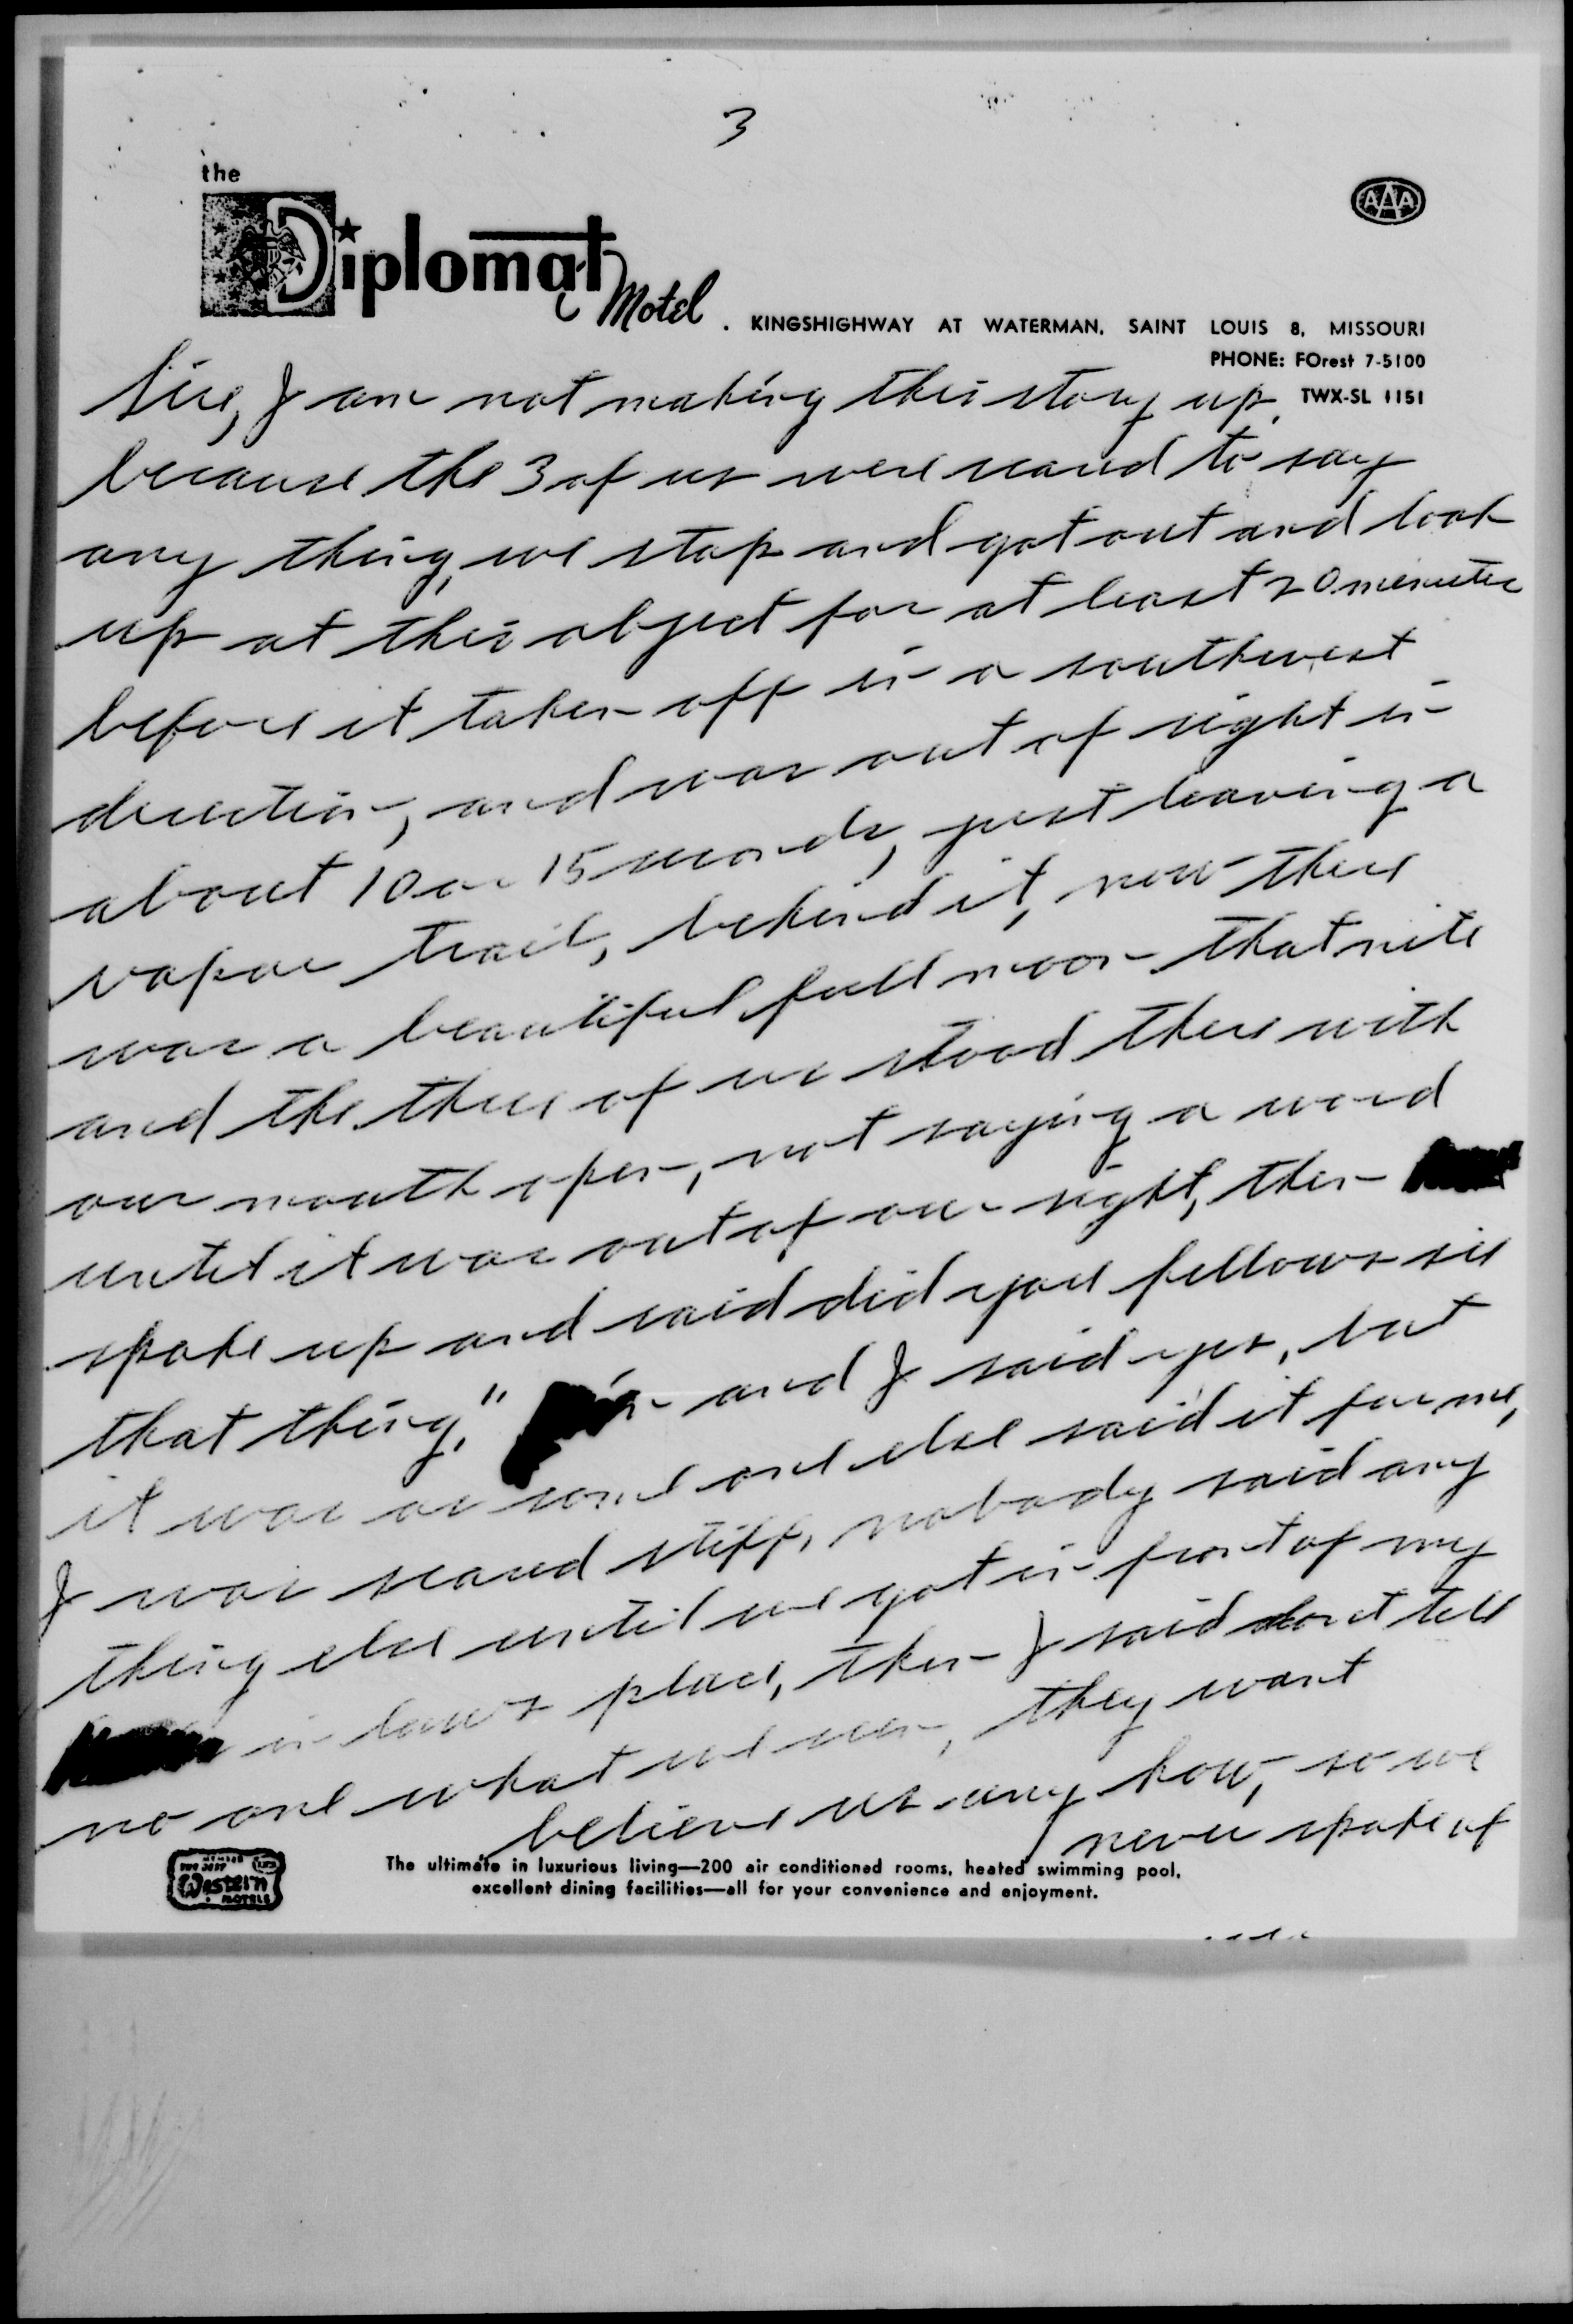 3
the
Diplomat Motel . KINGSHIGHWAY AT WATERMAN, SAINT LOUIS 8, MISSOURI
AAA
PHONE: FOrest 7-5100
TWX-SL 1151
Sir, I am not making this story up,
because the 3 of us were scared to say
any thing, we stop and got out and look
up at this object for at least 20 minutes
before it taken off in a southwest
direction, and was out of sight in
about 10 or 15 seconds, just leaving a
vapor trail, behind it, now there
was a beautiful full moon that nite
and the three of us stood there with
our mouth open, not saying a word
until it was out of our sight, then
spoke up and said did you fellows see
that thing." and I said yes, but
it was as some one else said it for me,
I was scared stiff, nobody said any
thing else until we got in front of my
in law's place, then I said don't tell
no one what we seen, they want
believe us any how, so we
never spoke of
MEMBER
BEST
Western
MOTELS
The ultimate in luxurious living—200 air conditioned rooms, heated swimming pool,
excellent dining facilities—all for your convenience and enjoyment.